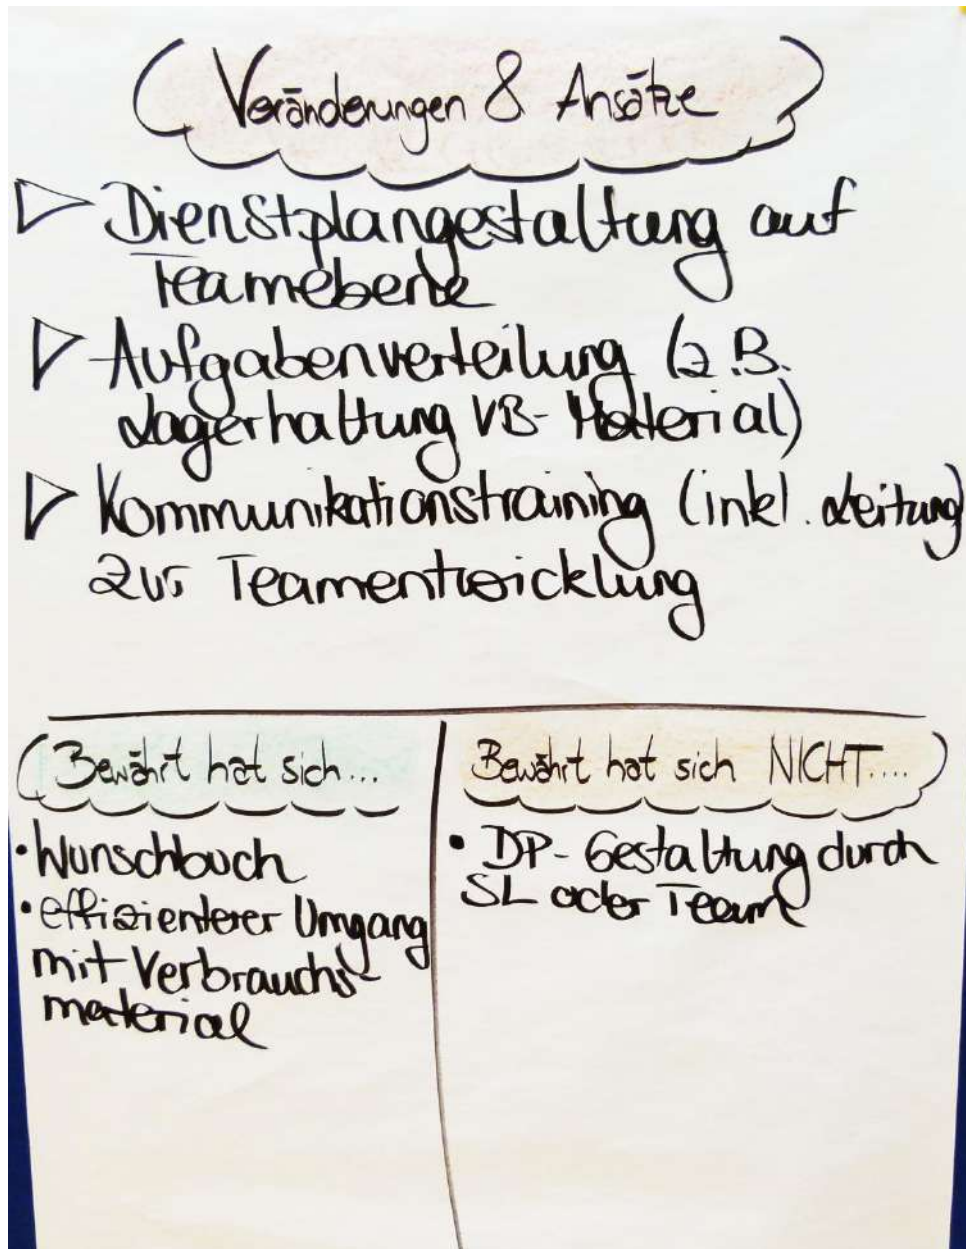 Veränderungen & Ansätze
Dienstplangestaltung auf
Teamebene
Aufgabenverteilung (z.B.
Lagerhaltung VB-Material)
Kommunikationstraining (inkl. Leitung)
zur Teamentwicklung
Bewährt hat sich...
• Wunschbuch
• effizienterer Umgang
mit Verbrauchs-
material
Bewährt hat sich NICHT....
• DP-Gestaltung durch
SL oder Team